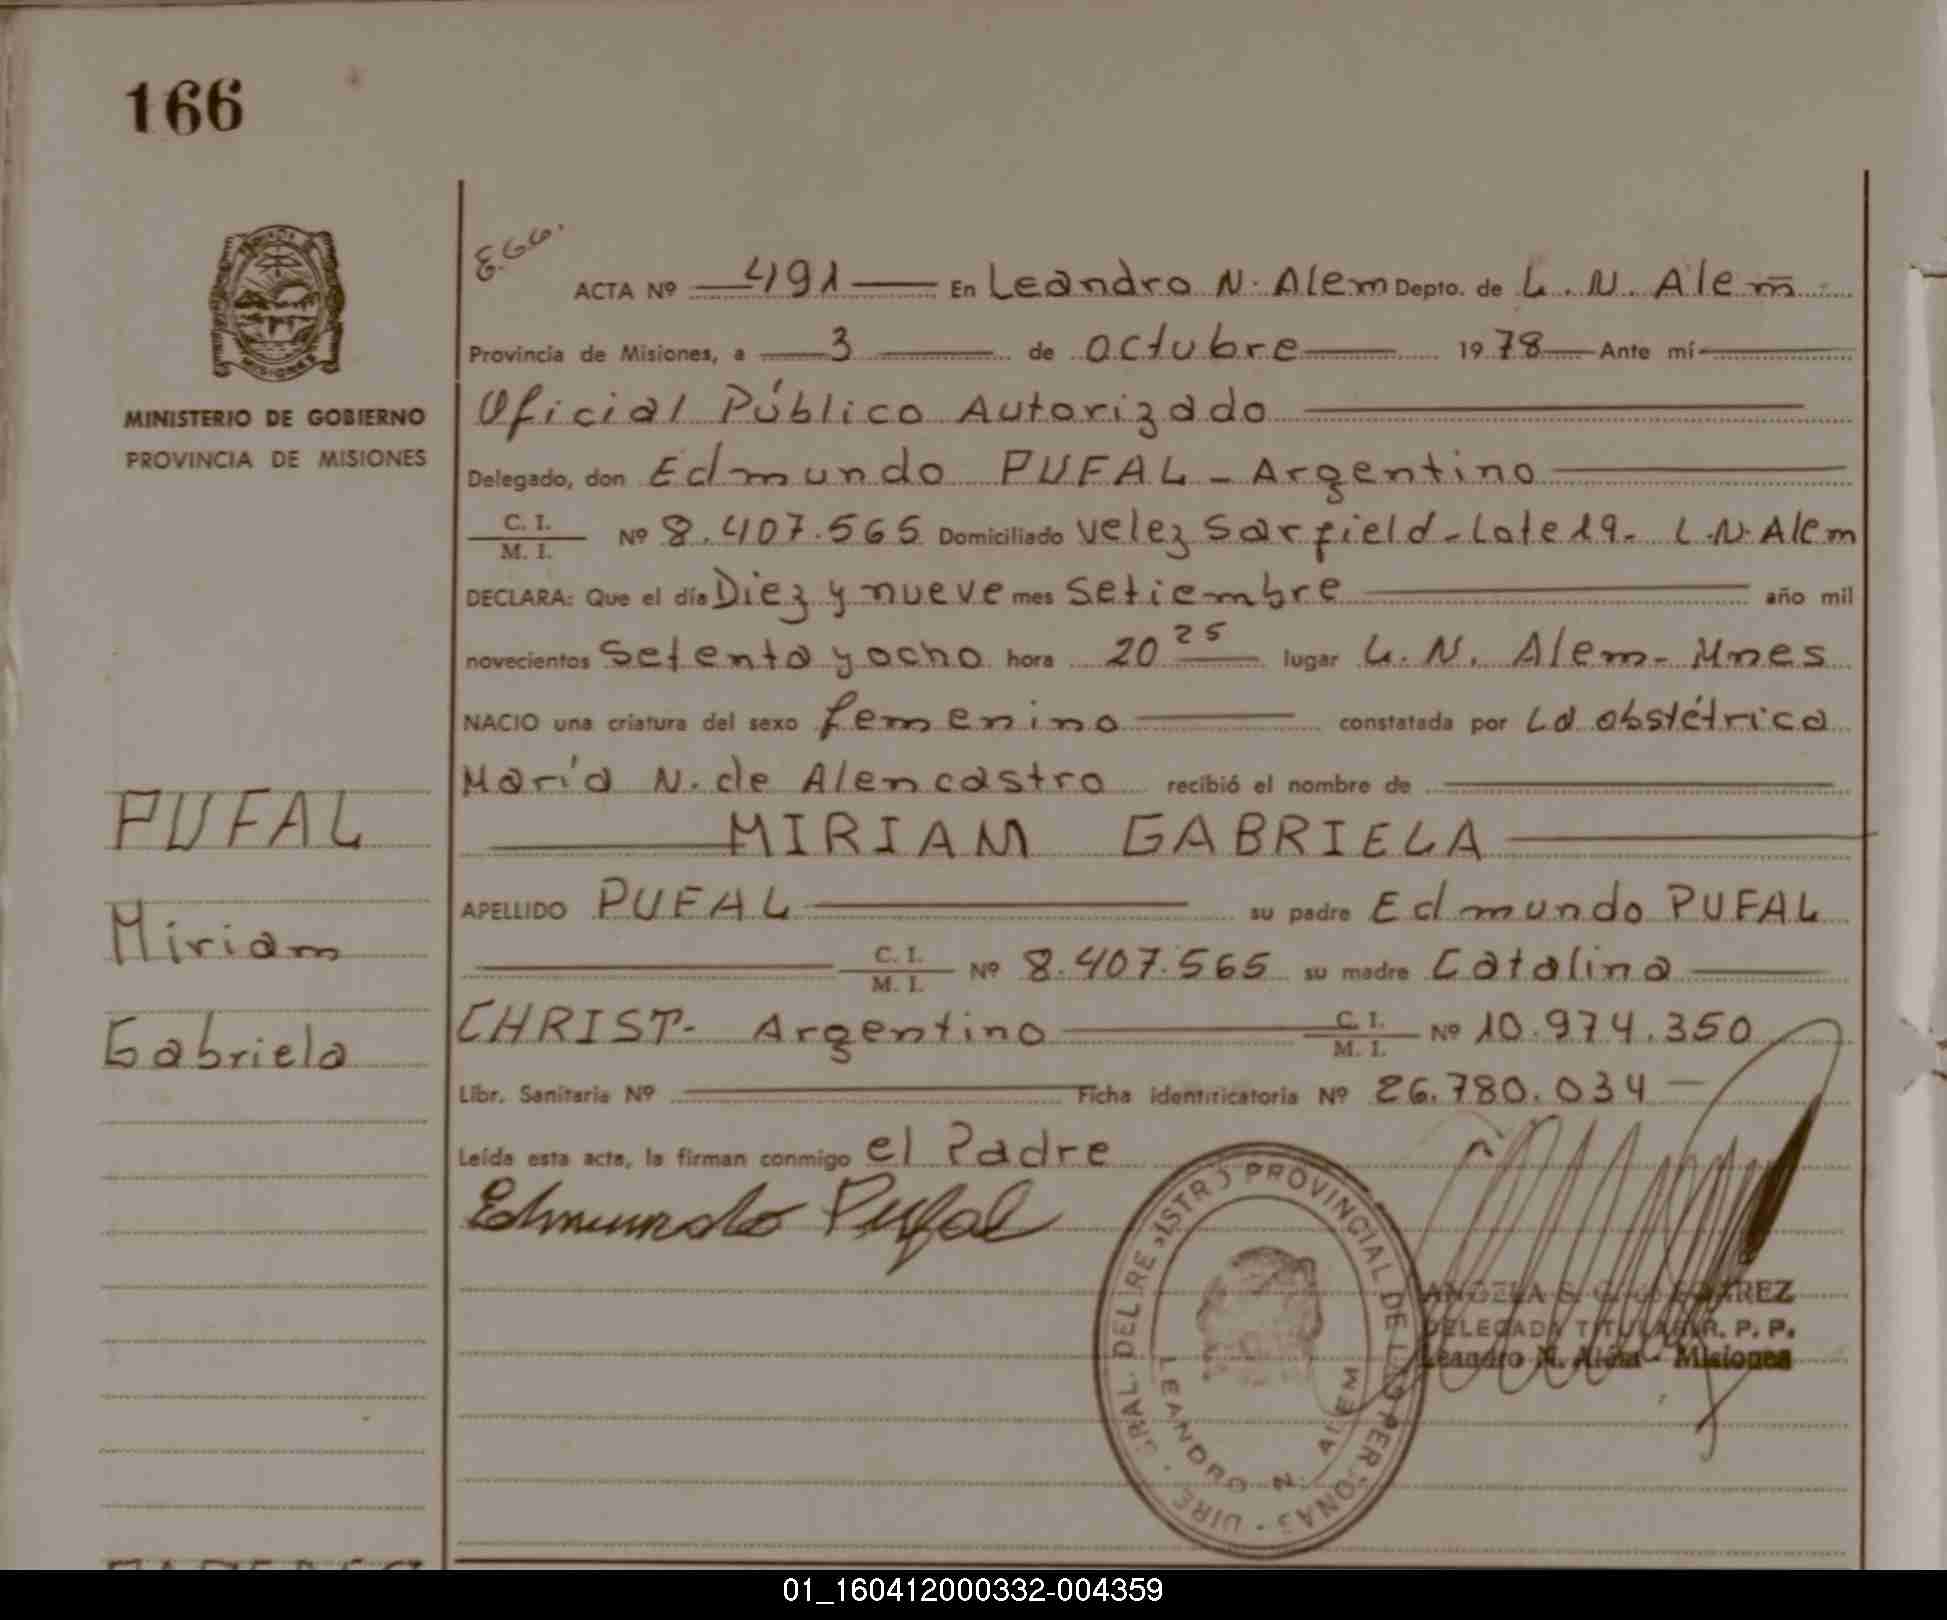 166
E.G.G.
ACTA Nº 491 En Leandro N. Alem Depto. de L. N. Alem
Provincia de Misiones, a 3 de octubre 1978 Ante mí
Oficial Público Autorizado
MINISTERIO DE GOBIERNO
PROVINCIA DE MISIONES
Delegado, don Edmundo PUFAL - Argentino
C. I.
M. I. Nº 8.407.565 Domiciliado Velez Sarfield - Lote 19 - L.N. Alem
DECLARA: Que el día Diez y nueve mes Setiembre año mil
novecientos Setenta y ocho hora 20 25 lugar L. N. Alem - Mnes
NACIO una criatura del sexo femenino constatada por La obstétrica
María N. de Alencastro recibió el nombre de
MIRIAM GABRIELA
PUFAL
Miriam
Gabriela
APELLIDO PUFAL su padre Edmundo PUFAL
C. I.
M. I. Nº 8.407.565 su madre Catalina
CHRIST - Argentino C. I.
M. I. Nº 10.974.350
Libr. Sanitaria Nº Ficha identificatoria Nº 26.780.034
Leída esta acta, la firman conmigo el Padre
Edmundo Pufal
GRAL. DEL REGISTRO PROVINCIAL DE LAS PERSONAS - DIRE
LEANDRO N. ALEM
ANGELA S. G. de SUAREZ
DELEGADA TITULAR R. P. P.
Leandro N. Alem - Misiones
01_160412000332-004359